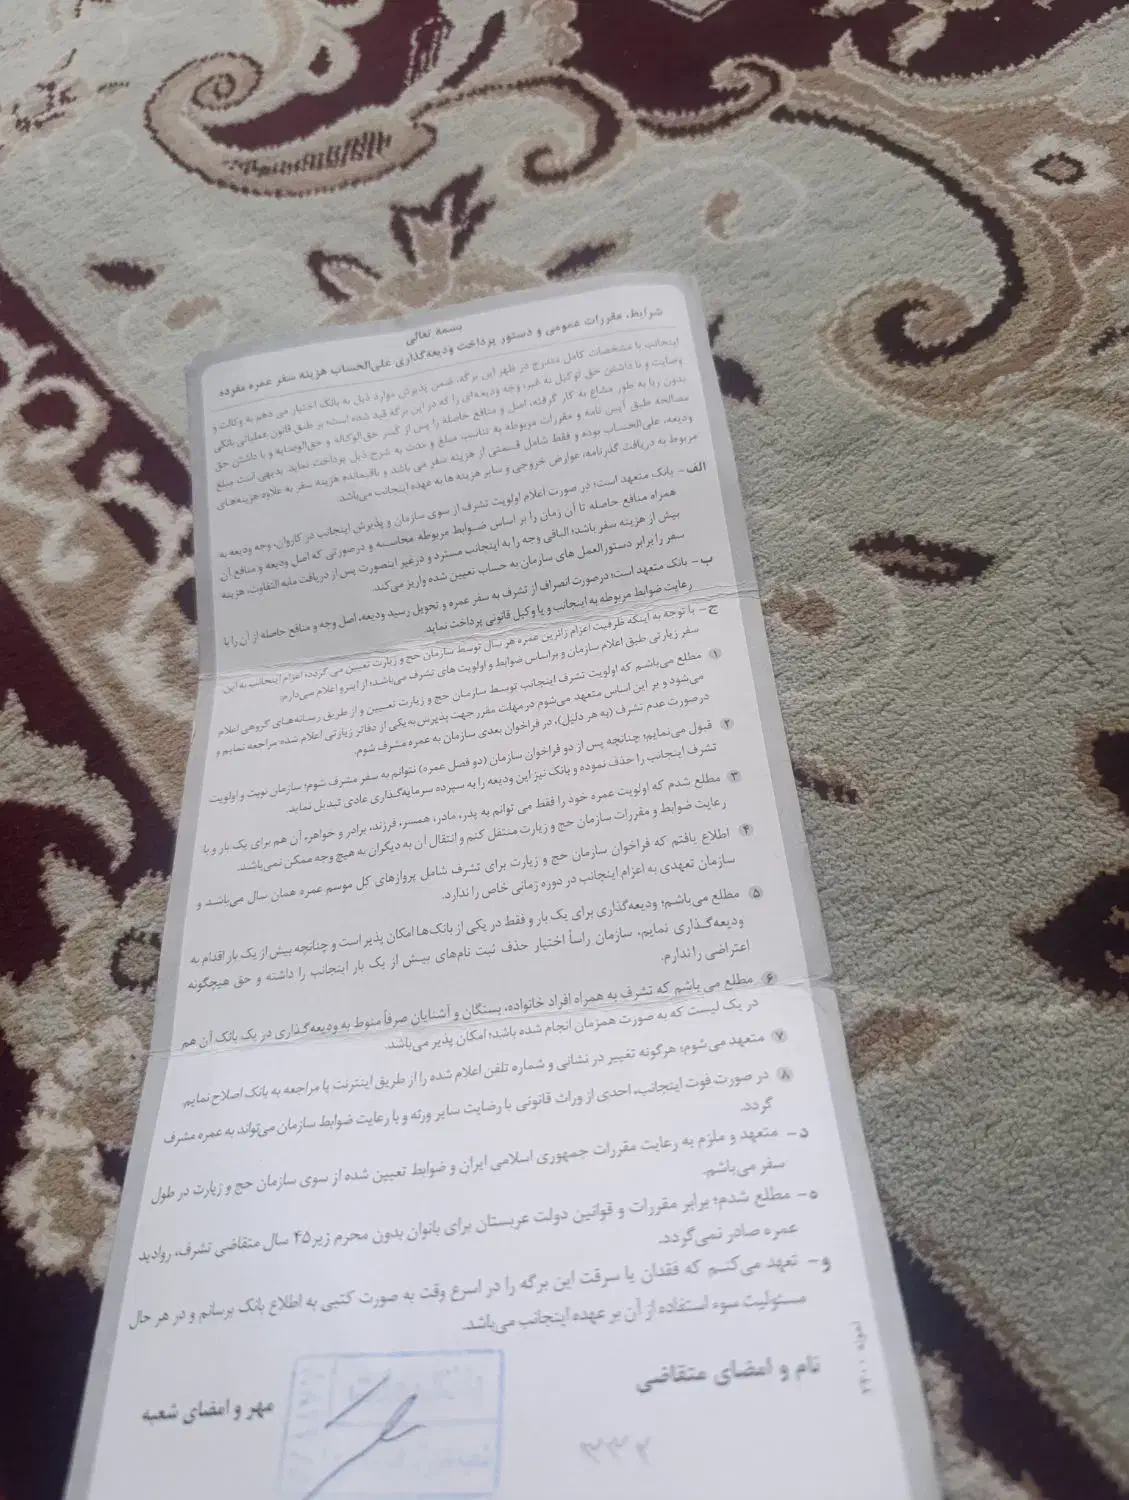 بسمه تعالی
شرایط، مقررات عمومی و دستور پرداخت ودیعه‌گذاری علی‌الحساب هزینه سفر عمره مفرده
اینجانب با مشخصات کامل مندرج در ظهر این برگه، ضمن پذیرش موارد ذیل به بانک اختیار می دهم به وکالت و
وصایت و با داشتن حق توکیل به غیر، وجه ودیعه‌ای را که در این برگه قید شده است؛ بر طبق قانون عملیاتی بانکی
بدون ربا به طور مشاع به کار گرفته، اصل و منافع حاصله را پس از کسر حق‌الوکاله و حق‌الوصایه و با داشتن حق
مصالحه طبق آیین نامه و مقررات مربوطه به تناسب مبلغ و مدت به شرح ذیل پرداخت نماید. بدیهی است مبلغ
ودیعه، علی‌الحساب بوده و فقط شامل قسمتی از هزینه سفر می باشد و باقیمانده هزینه سفر به علاوه هزینه‌های
مربوط به دریافت گذرنامه، عوارض خروجی و سایر هزینه ها به عهده اینجانب می‌باشد.
الف- بانک متعهد است؛ در صورت اعلام اولویت تشرف از سوی سازمان و پذیرش اینجانب در کاروان، وجه ودیعه به
همراه منافع حاصله تا آن زمان را بر اساس ضوابط مربوطه محاسبه و درصورتی که اصل ودیعه و منافع آن
بیش از هزینه سفر باشد؛ الباقی وجه را به اینجانب مسترد و درغیر اینصورت پس از دریافت مابه التفاوت، هزینه
سفر را برابر دستورالعمل های سازمان به حساب تعیین شده واریز می‌کند.
ب- بانک متعهد است؛ درصورت انصراف از تشرف به سفر عمره و تحویل رسید ودیعه، اصل وجه و منافع حاصله از آن را با
رعایت ضوابط مربوطه به اینجانب و یا وکیل قانونی پرداخت نماید.
ج- با توجه به اینکه ظرفیت اعزام زائرین عمره هر سال توسط سازمان حج و زیارت تعیین می گردد؛ اعزام اینجانب به این
سفر زیارتی طبق اعلام سازمان و براساس ضوابط و اولویت های تشرف می‌باشد؛ از اینرو اعلام می‌دارم:
۱ مطلع می‌باشم که اولویت تشرف اینجانب توسط سازمان حج و زیارت تعیین و از طریق رسانه‌های گروهی اعلام
می‌شود و بر این اساس متعهد می‌شوم در مهلت مقرر جهت پذیرش به یکی از دفاتر زیارتی اعلام شده مراجعه نمایم و
درصورت عدم تشرف (به هر دلیل)، در فراخوان بعدی سازمان به عمره مشرف شوم.
۲ قبول می‌نمایم؛ چنانچه پس از دو فراخوان سازمان (دو فصل عمره) نتوانم به سفر مشرف شوم؛ سازمان نوبت و اولویت
تشرف اینجانب را حذف نموده و بانک نیز این ودیعه را به سپرده سرمایه‌گذاری عادی تبدیل نماید.
۳ مطلع شدم که اولویت عمره خود را فقط می توانم به پدر، مادر، همسر، فرزند، برادر و خواهر، آن هم برای یک بار و با
رعایت ضوابط و مقررات سازمان حج و زیارت منتقل کنم و انتقال آن به دیگران به هیچ وجه ممکن نمی‌باشد.
۴ اطلاع یافتم که فراخوان سازمان حج و زیارت برای تشرف شامل پروازهای کل موسم عمره همان سال می‌باشد و
سازمان تعهدی به اعزام اینجانب در دوره زمانی خاص را ندارد.
۵ مطلع می‌باشم؛ ودیعه‌گذاری برای یک بار و فقط در یکی از بانک‌ها امکان پذیر است و چنانچه بیش از یک بار اقدام به
ودیعه‌گذاری نمایم، سازمان راساً اختیار حذف ثبت نام‌های بیش از یک بار اینجانب را داشته و حق هیچگونه
اعتراضی را ندارم.
۶ مطلع می باشم که تشرف به همراه افراد خانواده، بستگان و آشنایان صرفاً منوط به ودیعه‌گذاری در یک بانک آن هم
در یک لیست که به صورت همزمان انجام شده باشد؛ امکان پذیر می‌باشد.
۷ متعهد می‌شوم؛ هرگونه تغییر در نشانی و شماره تلفن اعلام شده را از طریق اینترنت یا مراجعه به بانک اصلاح نمایم.
۸ در صورت فوت اینجانب، احدی از وراث قانونی با رضایت سایر ورثه و با رعایت ضوابط سازمان می‌تواند، به عمره مشرف
گردد.
د- متعهد و ملزم به رعایت مقررات جمهوری اسلامی ایران و ضوابط تعیین شده از سوی سازمان حج و زیارت در طول
سفر می‌باشم.
ه- مطلع شدم؛ برابر مقررات و قوانین دولت عربستان برای بانوان بدون محرم زیر ۴۵ سال متقاضی تشرف، روادید
عمره صادر نمی‌گردد.
و- تعهد می‌کنم که فقدان یا سرقت این برگه را در اسرع وقت به صورت کتبی به اطلاع بانک برسانم و در هر حال
مسئولیت سوء استفاده از آن بر عهده اینجانب می‌باشد.
نام و امضای متقاضی
مهر و امضای شعبه